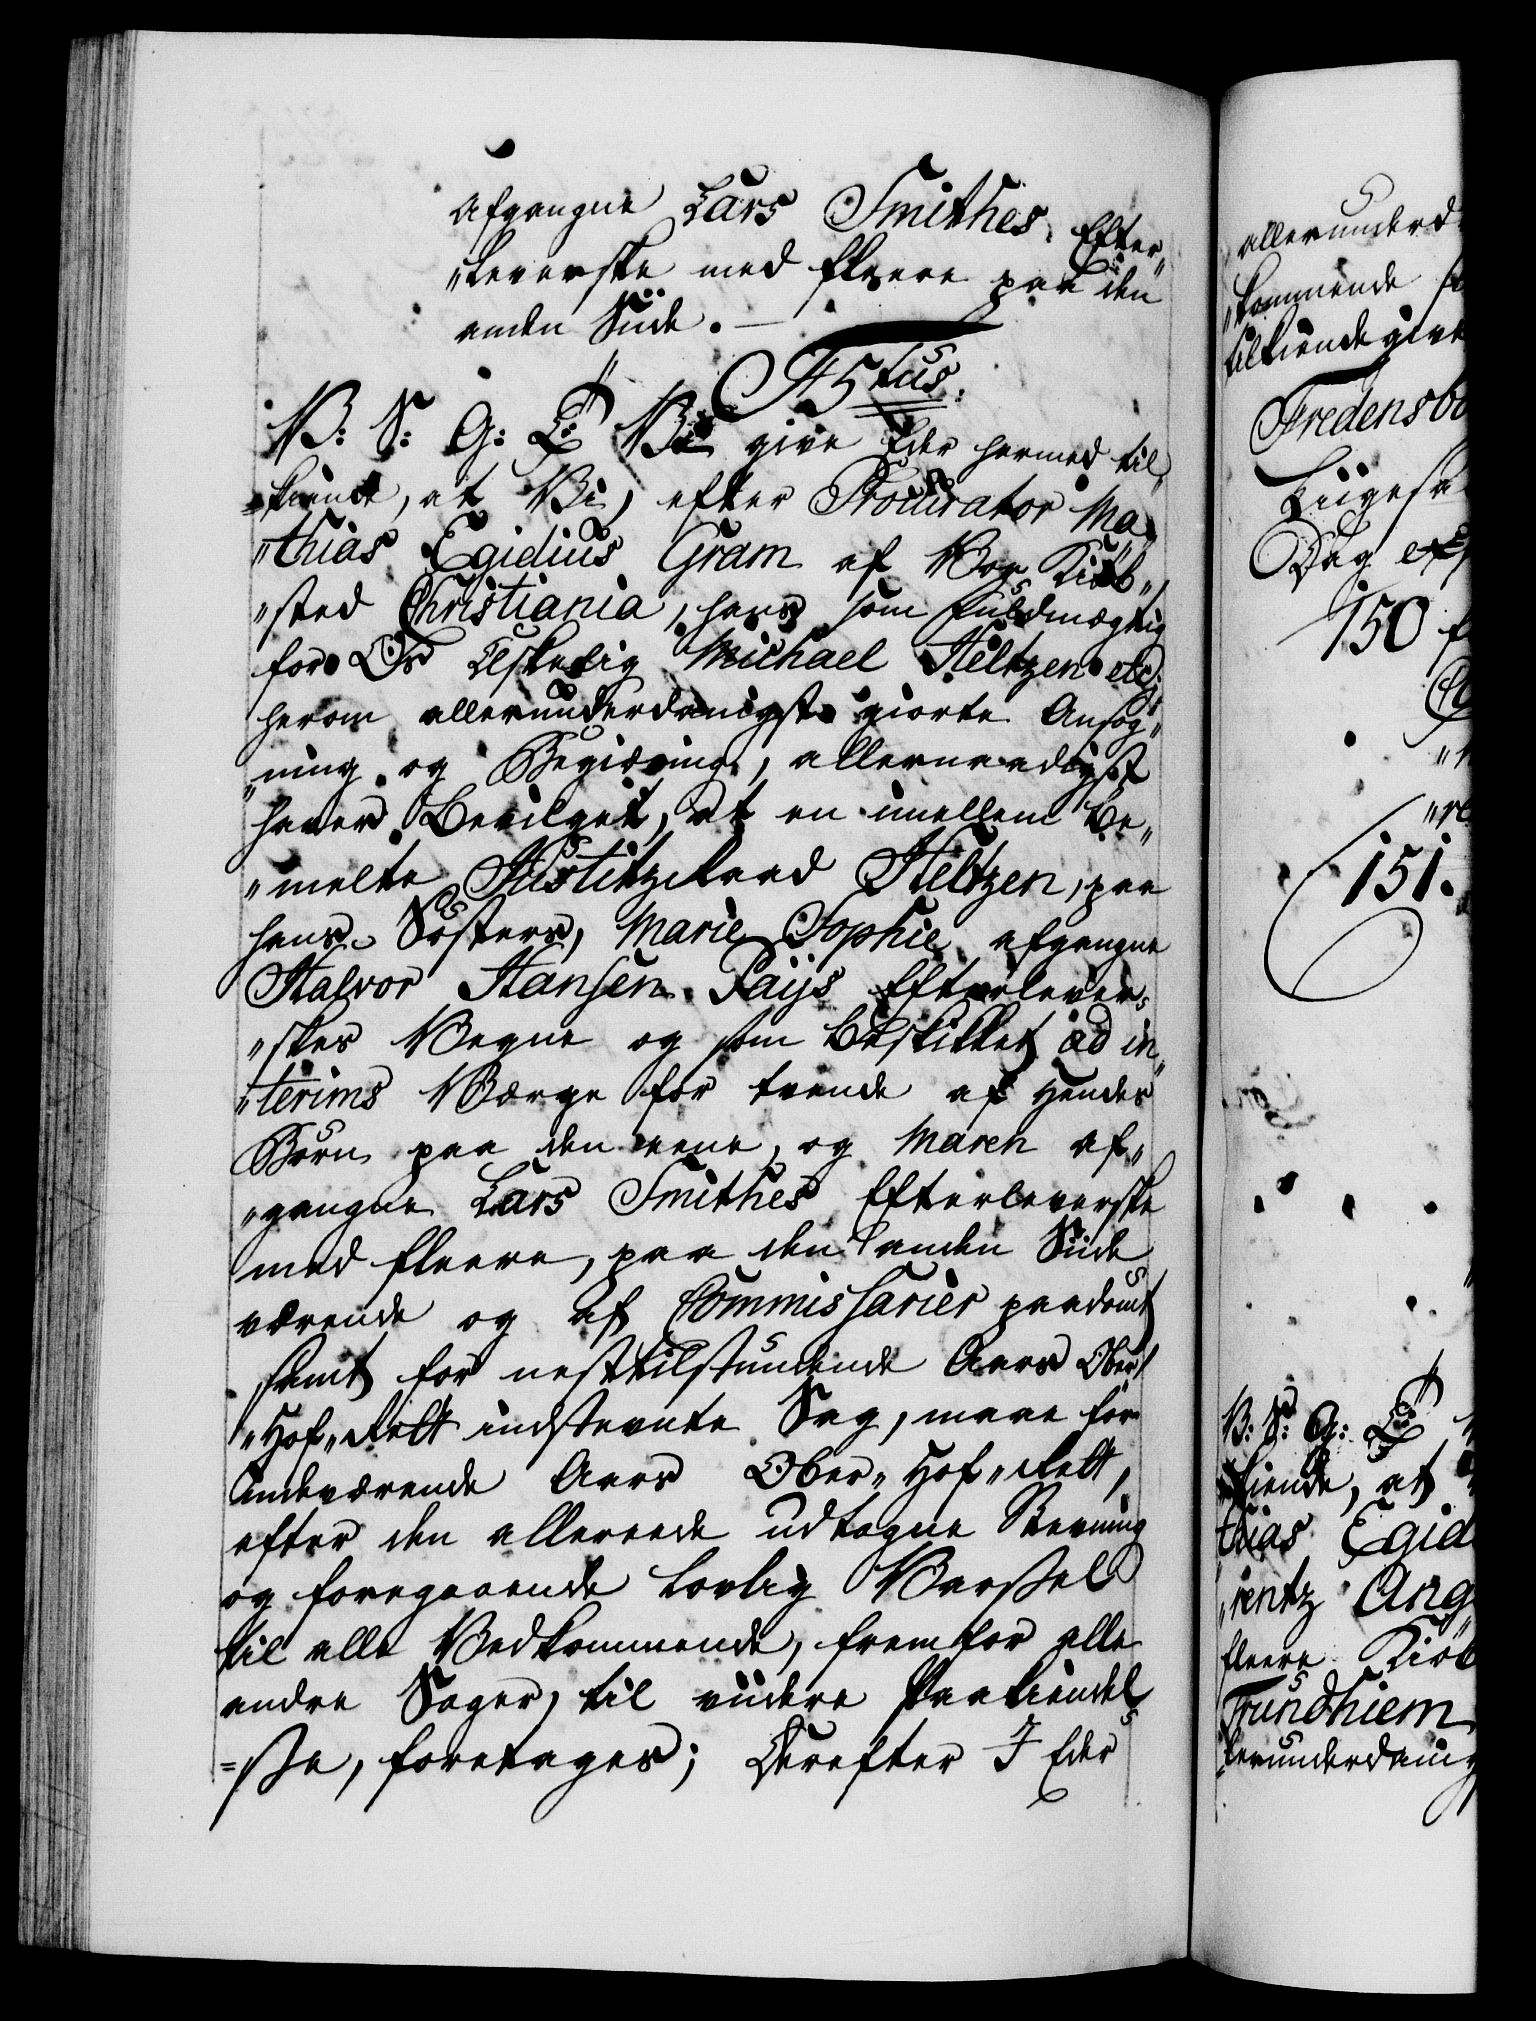 afgangne Lars Smithes Efter„
„leverske med fleere paa den
anden Siide. —
F5tus.
V: S: G: T: Vi give Eder hermed til„
„kiende, at Vi, efter Procurator Ma„
„thias Egidius Gram af Vor Kiöb„
„sted Christiania, hans som Fuldmægtig
for Os Elskelig Michael Heltzen etc:
herom allerunderdanigst giorte Ansøg„
„ning og Begiæring, allernaadigst
haver Bevilget, at en imellem be„
„melte Justitzraad Heltzen, paa
hans Søsters, Marie Sophie afgangne
Halvor Hansen Paijs Efterlever„
„skes Vegne og som beskikket ad in„
„terims Værge for tvende af Hendes
Børn paa den eene, og Maren af„
„gangne Lars Smithes Efterleverske
med fleere, paa den anden Siide
værende og af Commissarier paadömt
samt for nesttilstundende Aars Ober„
„Hof„Rett indstevnte Sag, maae for
indeværende Aars Ober„Hof„Rett,
efter den allereede udtagne Stevning
og foregaaende lovlig Varssel
til alle Vedkommende, fremfor alle
andre Sager, til viidere Paakiendel„
„sse, foretages; Derefter I Eder
allerunderd
„kommende
tilkiendegive
Fredensbo
Liigesaa
Dag exp
150
151.
V: S: G: T:
„kiende, at
thias Egid
„rentz Ang
fleere Kiöb
Trundhiem
lerunderdanig